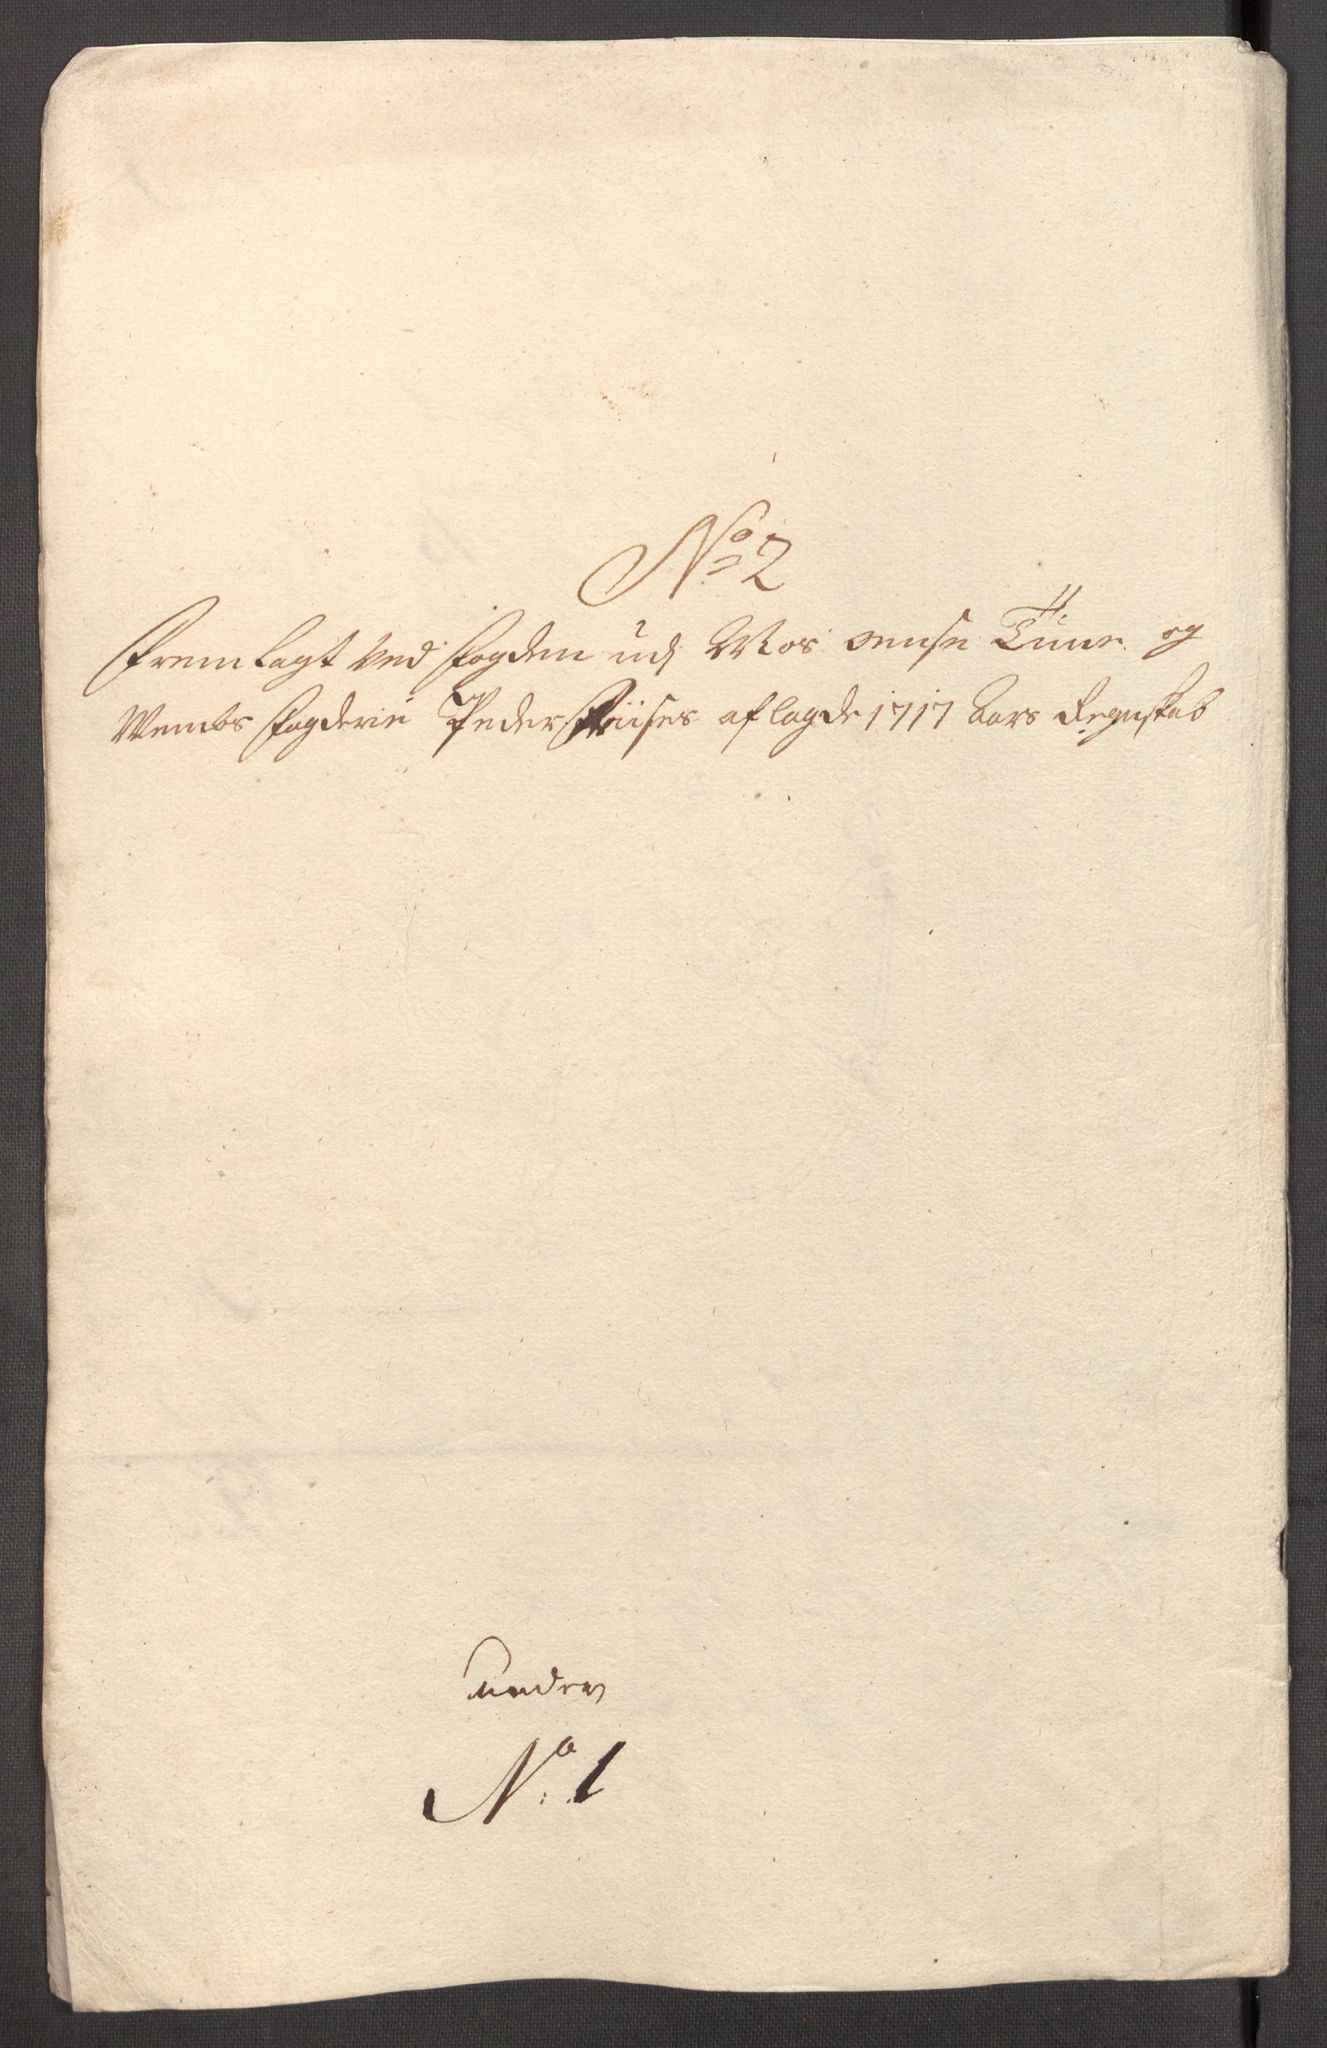 No 2
Fremlagt ved Fogden udj Mos Onsøe Tune og
Wembe Fogderie Peder Friises aflagde 1717 Aars Regnskab
under
No. 1